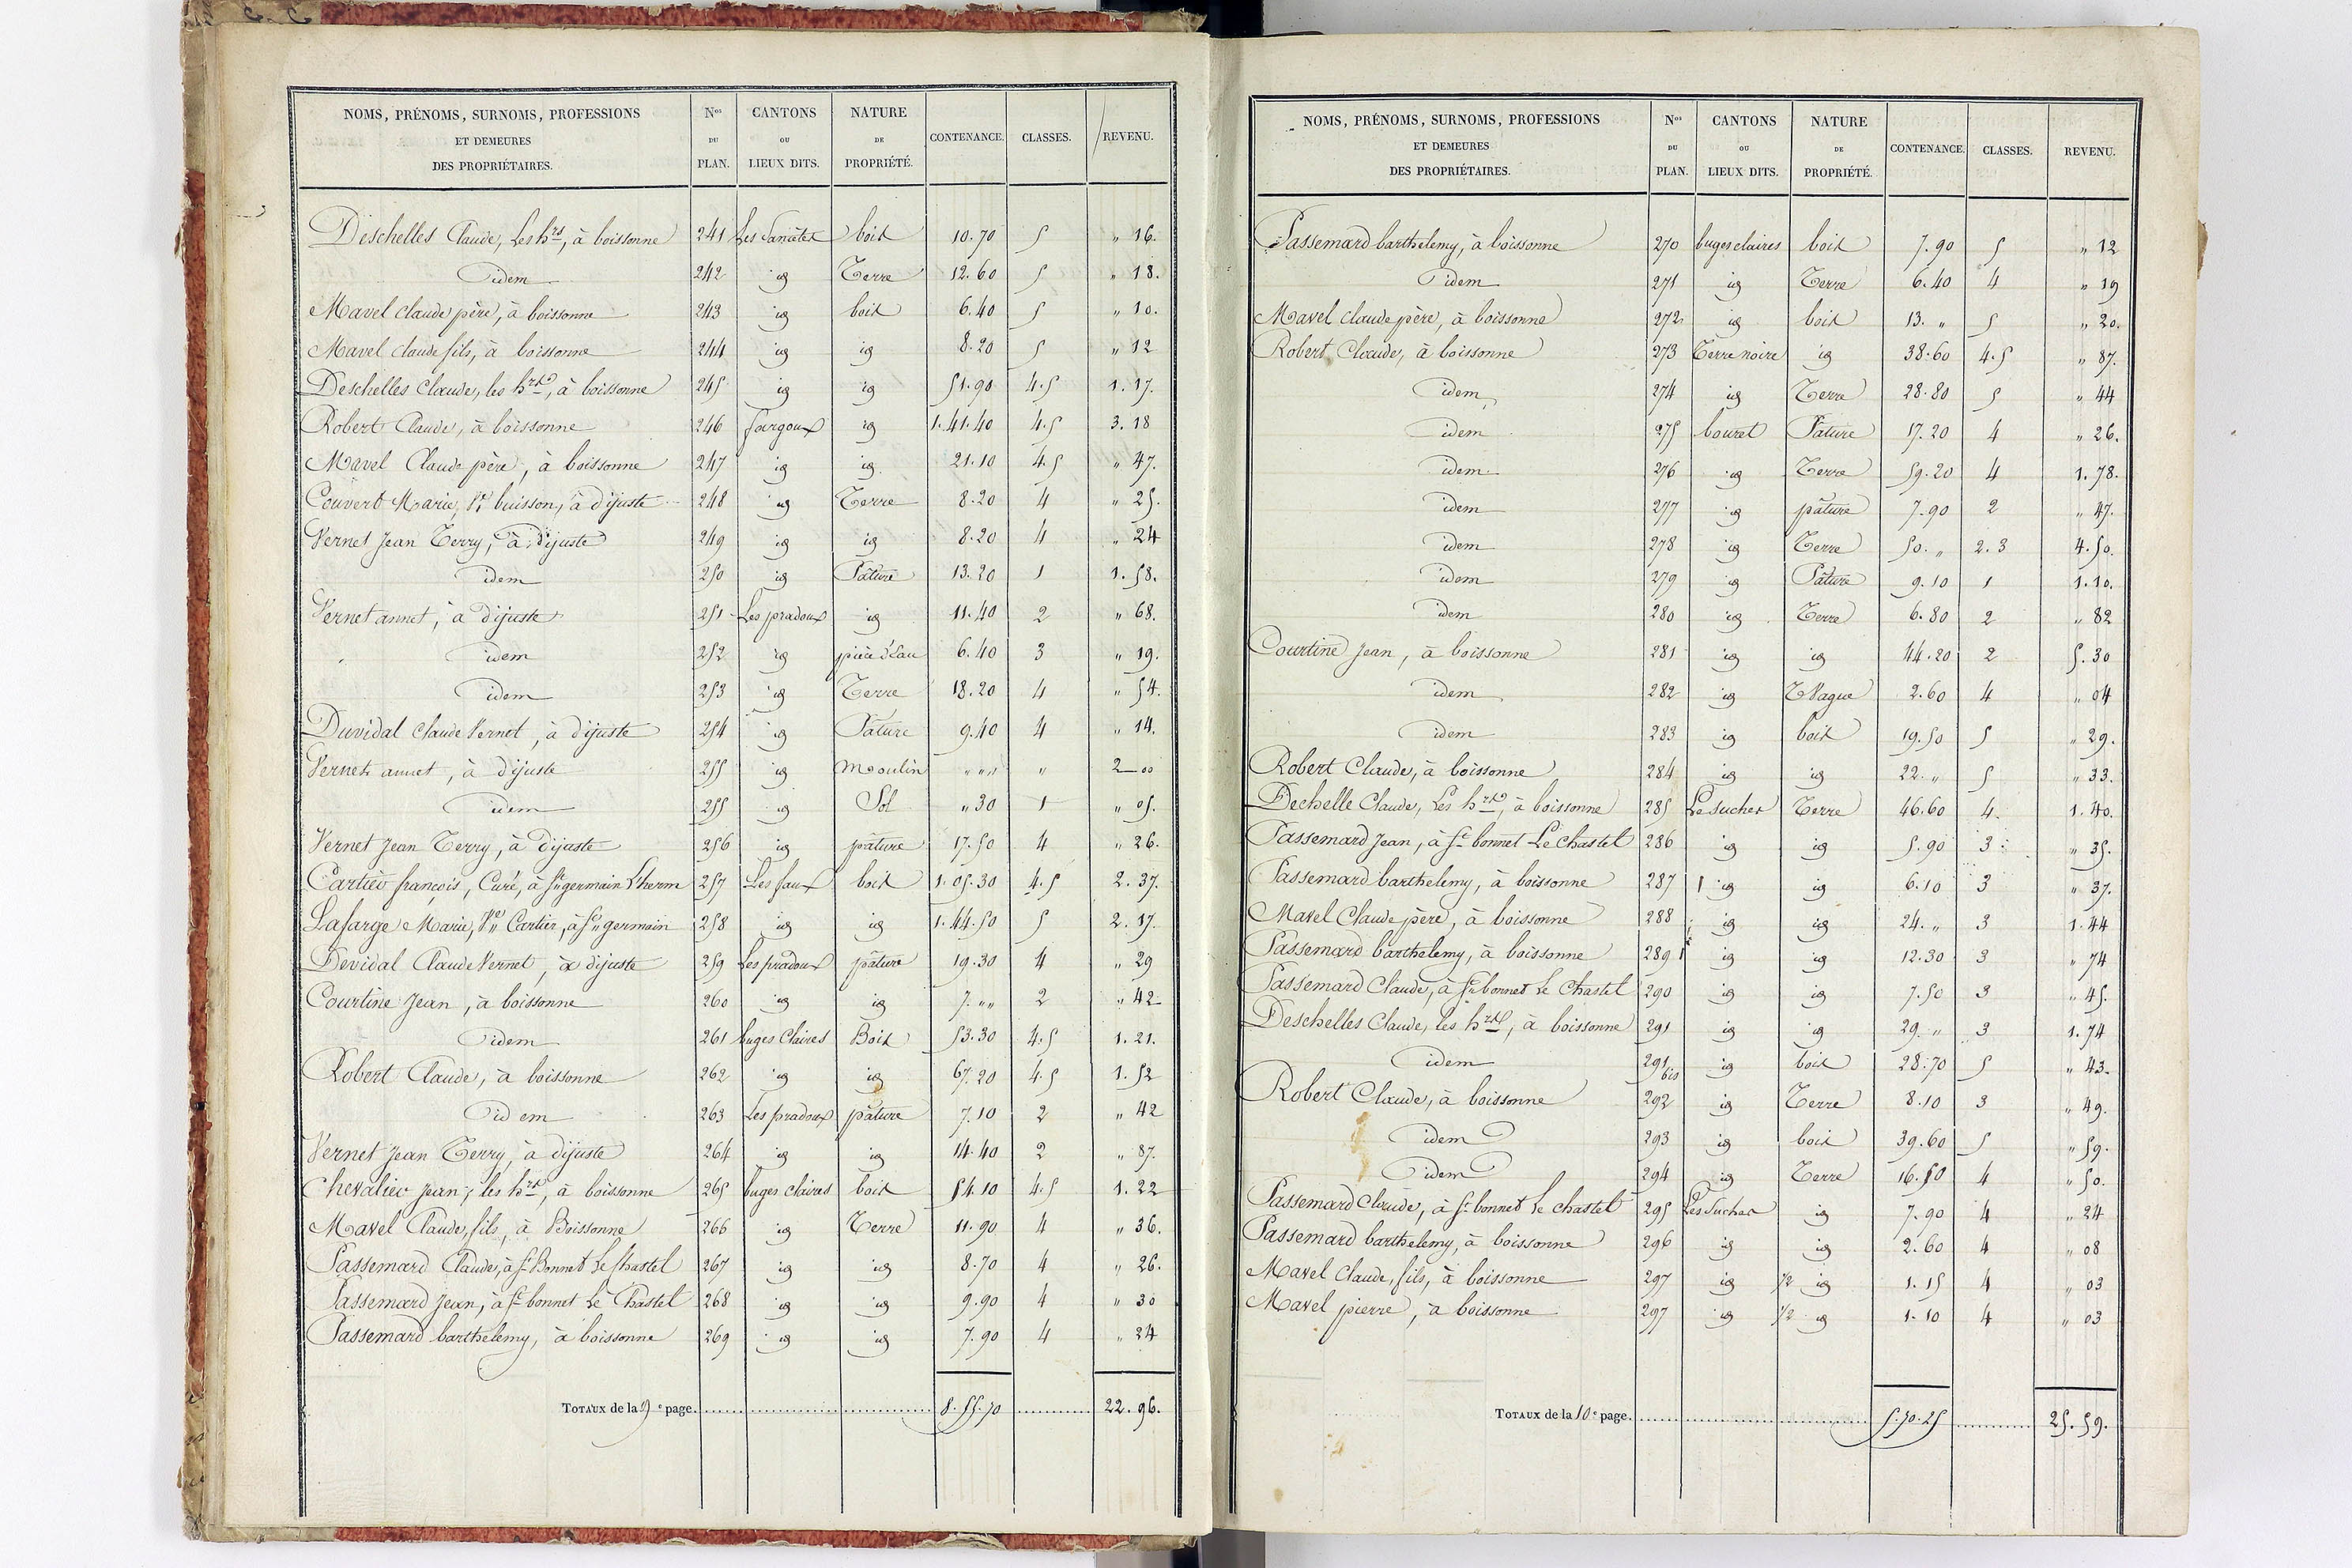 NOMS, PRÉNOMS, SURNOMS, PROFESSIONS ET DEMEURES DES PROPRIÉTAIRES. Nos DU PLAN. CANTONS OU LIEUX DITS. NATURE DE PROPRIÉTÉ. CONTENANCE. CLASSES. REVENU.
Deschelles Claude, Les hrs, à boissonne 241 Les bois 10.70 5 " 16.
idem 242 id Terre 12.60 5 " 18.
Mavel Claude père, à boissonne 243 id bois 6.40 5 " 10.
Mavel Claude fils, à boissonne 244 id id 8.20 5 " 12
Deschelles Claude, les hrs, à boissonne 245 id id 51.90 4.5 1.17.
Robert Claude, à boissonne 246 fargoux id 1.41.40 4.5 3.18
Mavel Claude père, à boissonne 247 id id 21.10 4.5 " 47.
Couvert Marie, Ve buisson, à dijuste 248 id Terre 8.20 4 " 25.
Vernet Jean Terry, à dijuste 249 id id 8.20 4 " 24
idem 250 id Pâture 13.20 1 1.58.
Vernet annet, à dijuste 251 Les pradoux id 11.40 2 " 68.
idem 252 id pièce d'eau 6.40 3 " 19.
idem 253 id Terre 18.20 4 " 54.
Duvidal Claude Vernet, à dijuste 254 id Pature 9.40 4 " 14.
Vernet annet, à dijuste 255 id Moulin " " " " 2 00
idem 255 id Sol " 30 1 " 05.
Vernet Jean Terry, à dijuste 256 id pâture 17.50 4 " 26.
Cartier françois, Curé, à St germain L'herm 257 Les faux bois 1.05.30 4.5 2.37.
Lafarge Marie, Ve Cartier, à St germain 258 id id 1.44.50 5 2.17.
Devidal Claude Vernet, à dijuste 259 Les pradoux pâture 19.30 4 " 29
Courtine Jean, à boissonne 260 id id 7. " " 2 " 42
idem 261 buges Claires Bois 53.30 4.5 1.21.
Robert Claude, à boissonne 262 id id 67.20 4.5 1.52
idem 263 Les pradoux pâture 7.10 2 " 42
Vernet Jean Terry, à dijuste 264 id id 14.40 2 " 87.
Chevalier Jean, les hrs, à boissonne 265 buges claires bois 54.10 4.5 1.22
Mavel Claude, fils, à Boissonne 266 id Terre 11.90 4 " 36.
Passemard Claude, à St Bonnet Le Chastel 267 id id 8.70 4 " 26.
Passemard Jean, à St bonnet Le Chastel 268 id id 9.90 4 " 30
Passemard barthelemy, à boissonne 269 id id 7.90 4 " 24
TOTAUX de la 9e page. 8.55.70 22.96.
NOMS, PRÉNOMS, SURNOMS, PROFESSIONS ET DEMEURES DES PROPRIÉTAIRES. Nos DU PLAN. CANTONS OU LIEUX DITS. NATURE DE PROPRIÉTÉ. CONTENANCE. CLASSES. REVENU.
Passemard barthelemy, à boissonne 270 buges claires bois 7.90 5 " 12
idem 271 id Terre 6.40 4 " 19
Mavel Claude père, à boissonne 272 id bois 13. " 5 " 20.
Robert Claude, à boissonne 273 Terre noire id 38.60 4.5 " 87.
idem 274 id Terre 28.80 5 " 44
idem 275 bouret Pature 17.20 4 " 26.
idem 276 id Terre 59.20 4 1.78.
idem 277 id pâture 7.90 2 " 47.
idem 278 id Terre 50. " 2.3 4.50.
idem 279 id Pâture 9.10 1 1.10.
idem 280 id Terre 6.80 2 " 82
Courtine Jean, à boissonne 281 id id 44.20 2 5.30
idem 282 id T Vague 2.60 4 " 04
idem 283 id bois 19.50 5 " 29.
Robert Claude, à boissonne 284 id id 22. " 5 " 33.
Dechelle Claude, Les hrs, à boissonne 285 Le Suchet Terre 46.60 4. 1.40.
Passemard Jean, à St bonnet Le Chastel 286 id id 5.90 3 " 35.
Passemard barthelemy, à boissonne 287 id id 6.10 3 " 37.
Mavel Claude père, à boissonne 288 id id 24. " 3 1.44
Passemard barthelemy, à boissonne 289 id id 12.30 3 " 74
Passemard Claude, à St bonnet Le Chastel 290 id id 7.50 3 " 45.
Deschelles Claude, les hrs, à boissonne 291 id id 29. " 3 1.74
idem 291 bis id bois 28.70 5 " 43.
Robert Claude, à boissonne 292 id Terre 8.10 3 " 49.
idem 293 id bois 39.60 5 " 59.
idem 294 id Terre 16.50 4 " 50.
Passemard Claude, à St bonnet Le chastel 295 Les Suches id 7.90 4 " 24
Passemard barthelemy, à boissonne 296 id id 2.60 4 " 08
Mavel Claude, fils, à boissonne 297 id 1/2 id 1.15 4 " 03
Mavel pierre, à boissonne 297 id 1/2 id 1.10 4 " 03
TOTAUX de la 10e page. 5.70.25 25.59.